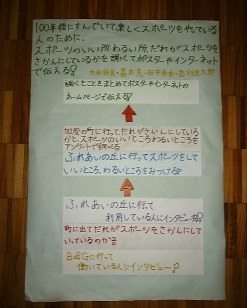 100年後にすんでいて楽しくスポーツをやっている
人のために、
スポーツのいい所わるい所だれがスポーツを
さかんにしているかを調べてポスターやインターネット
で伝える!
調べたことをまとめてポスターやインターネットの
ホームページで伝える!
の町に行ってだれがさかんにしている
かとスポーツのいいところわるいところを
アンケートで調べる
ふれあいの丘に行ってスポーツをして
いいところ、わるいところをみつける
ふれあいの丘に行って
利用している人にインタビュー
町に出てだれがスポーツをさかんにして
いっているのか
B&Gに行って
働いている人にインタビュー